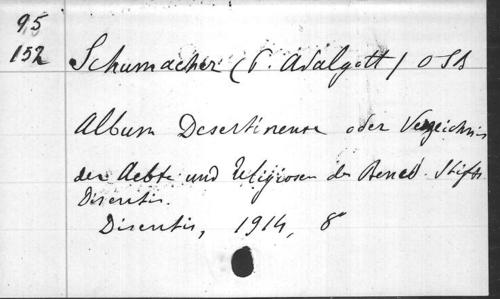 95
152
Schumacher (P. Adalgott) OSB
Album Desertinense oder Verzeichnis
der Aebte und Religiosen des Bened. Stifts
Disentis.
Disentis, 1914, 8°